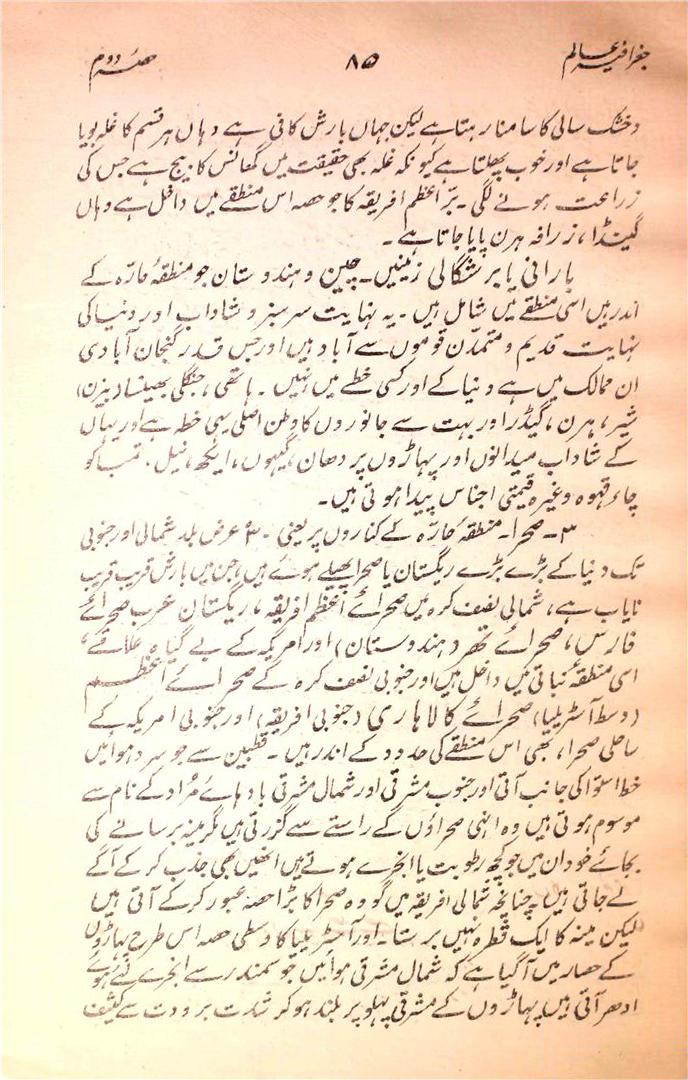 جغرافیہ عالم ۸۵ حصہ دوم
و خشک سالی کا سامنا رہتا ہے لیکن جہاں بارش کافی ہے وہاں ہر قسم کا غلہ بویا
جاتا ہے اور خوب پھلتا ہے کیونکہ غلہ بھی حقیقت میں گھانس کا بیج ہے جس کی
زراعت ہونے لگی۔ برّ اعظم افریقہ کا جو حصہ اس منطقے میں داخل ہے وہاں
گینڈا، زرافہ ہرن پایا جاتا ہے۔
بارانی یا برشگالی زمینیں۔ چین و ہندوستان جو منطقۂ حارّہ کے
اندر ہیں اسی منطقے میں شامل ہیں۔ یہ نہایت سرسبز و شاداب اور دنیا کی
نہایت قدیم و متمدّن قوموں سے آباد ہیں اور جس قدر گنجان آبادی
ان ممالک میں ہے دنیا کے اور کسی خطے میں نہیں۔ ہاتھی، جنگلی بھینسا (بیزن)
شیر، ہرن، گیدڑ اور بہت سے جانوروں کا وطن اصلی یہی خطہ ہے اور یہاں
کے شاداب میدانوں اور پہاڑوں پر دھان، گیہوں، ایکھ، نیل۔ تمباکو
چاء قہوہ وغیرہ قیمتی اجناس پیدا ہوتی ہیں۔
۳۔ صحرا۔ منطقۂ حارّہ کے کناروں پر یعنی ۳۰ْ عرض بلد شمالی اور جنوبی
تک دنیا کے بڑے بڑے ریگستان یا صحرا پھیلے ہوئے ہیں، جن میں بارش قریب قریب
نایاب ہے، شمالی نصف کرہ میں صحرائے اعظم افریقہ، ریگستان عرب صحرائے
فارس، صحرائے تھر (ہندوستان) اور امریکہ کے بے گیاہ علاقے،
اسی منطقۂ نباتی میں داخل ہیں اور جنوبی نصف کرہ کے صحرائے اعظم
(وسط آسٹریلیا) صحرائے کالاہاری (جنوبی افریقہ) اور جنوبی امریکہ کے
ساحلی صحرا، بھی اس منطقے کی حدود کے اندر ہیں۔ قطبین سے جو سرد ہوائیں
خط استوا کی جانب آتی اور جنوب مشرقی اور شمال مشرقی بادہائے مُراد کے نام سے
موسوم ہوتی ہیں وہ انہی صحراؤں کے راستے سے گزرتی ہیں مگر مینہ برسانے کی
بجائے خود ان میں جو کچھ رطوبت یا ابخرے ہوتے ہیں انھیں بھی جذب کر کے آگے
لے جاتی ہیں۔ چنانچہ شمالی افریقہ میں گو وہ صحرا کا بڑا حصہ عبور کر کے آتی ہیں
لیکن مینہ کا ایک قطرہ نہیں برستا۔ اور آسٹریلیا کا وسطی حصہ اس طرح پہاڑوں
کے حصار میں آ گیا ہے کہ شمال مشرقی ہوائیں جو سمندر سے ابخرے لئے ہوئے
ادھر آتی ہیں پہاڑوں کے مشرقی پہلو پر بلند ہو کر شدّت برودت سے کثیف